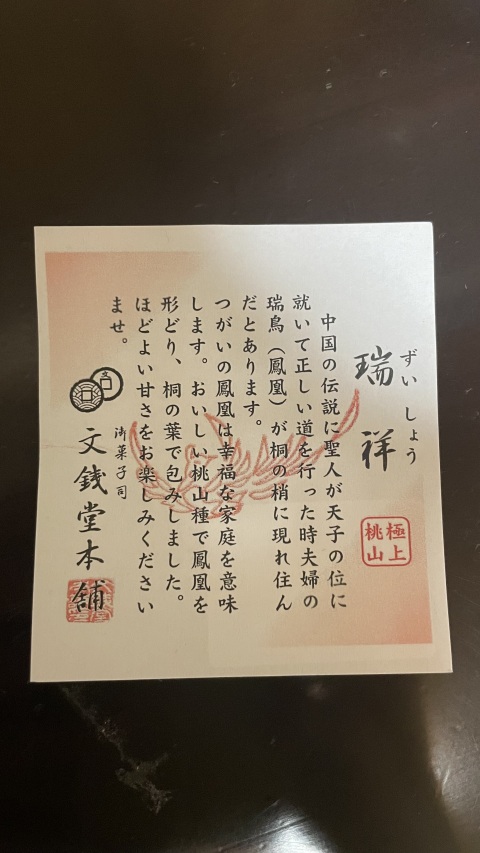 ずいしょう
瑞祥
極上
桃山
中国の伝説に聖人が天子の位に
就いて正しい道を行った時夫婦の
瑞鳥（鳳凰）が桐の梢に現れ住ん
だとあります。
つがいの鳳凰は幸福な家庭を意味
します。おいしい桃山種で鳳凰を
形どり、桐の葉で包みしました。
ほどよい甘さをお楽しみください
ませ。
御菓子司
文銭堂本舗